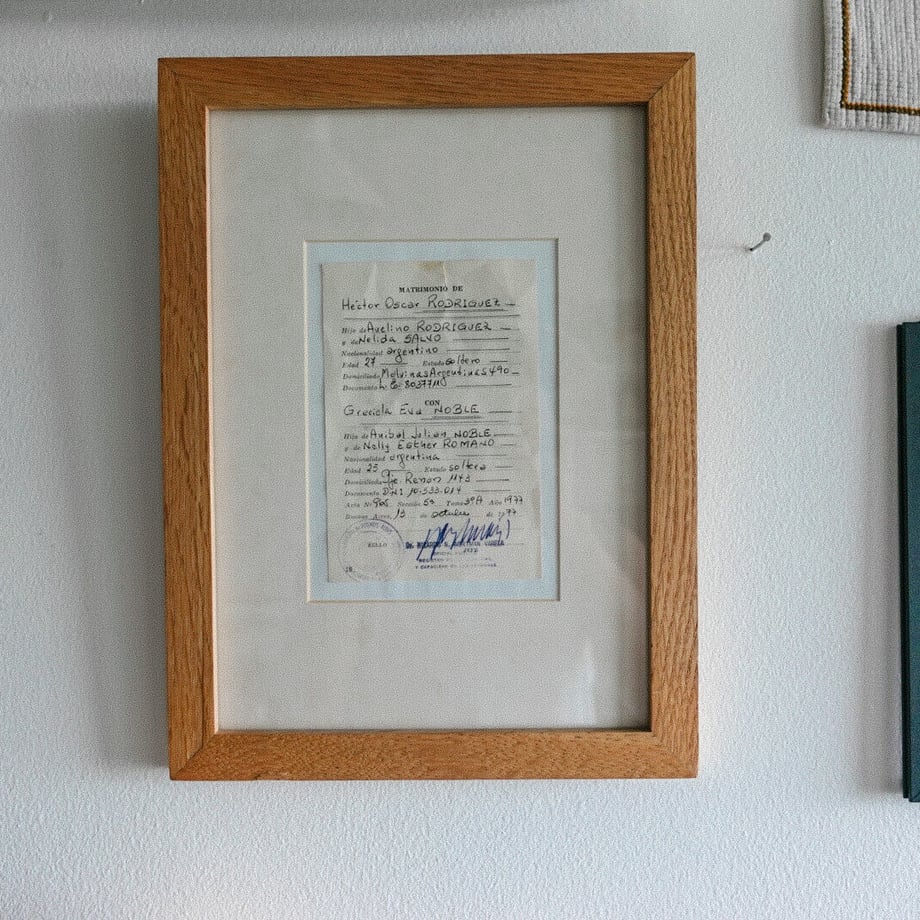 MATRIMONIO DE
Héctor Oscar RODRIGUEZ
Hijo de Avelino RODRIGUEZ
y de Nelida SALVO
Nacionalidad argentino
Edad 27 Estado soltero
Domiciliado Malvinas Argentinas 490
Documento L.E.
CON
Graciela Eva NOBLE
Hija de Anibal Julian NOBLE
y de Nelly Esther ROMANO
Nacionalidad argentina
Edad 25 Estado soltera
Domiciliada 1143
Documento DNI 10.533.014
Acta Nº Sección 5ª Tomo 3º A Año 1977
Buenos Aires, 13 de octubre de 1977
SELLO